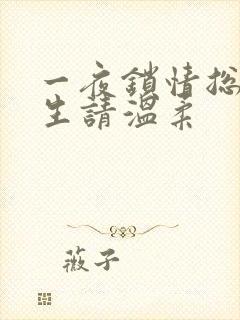 一夜鎖情総
生請溫柔
薇子